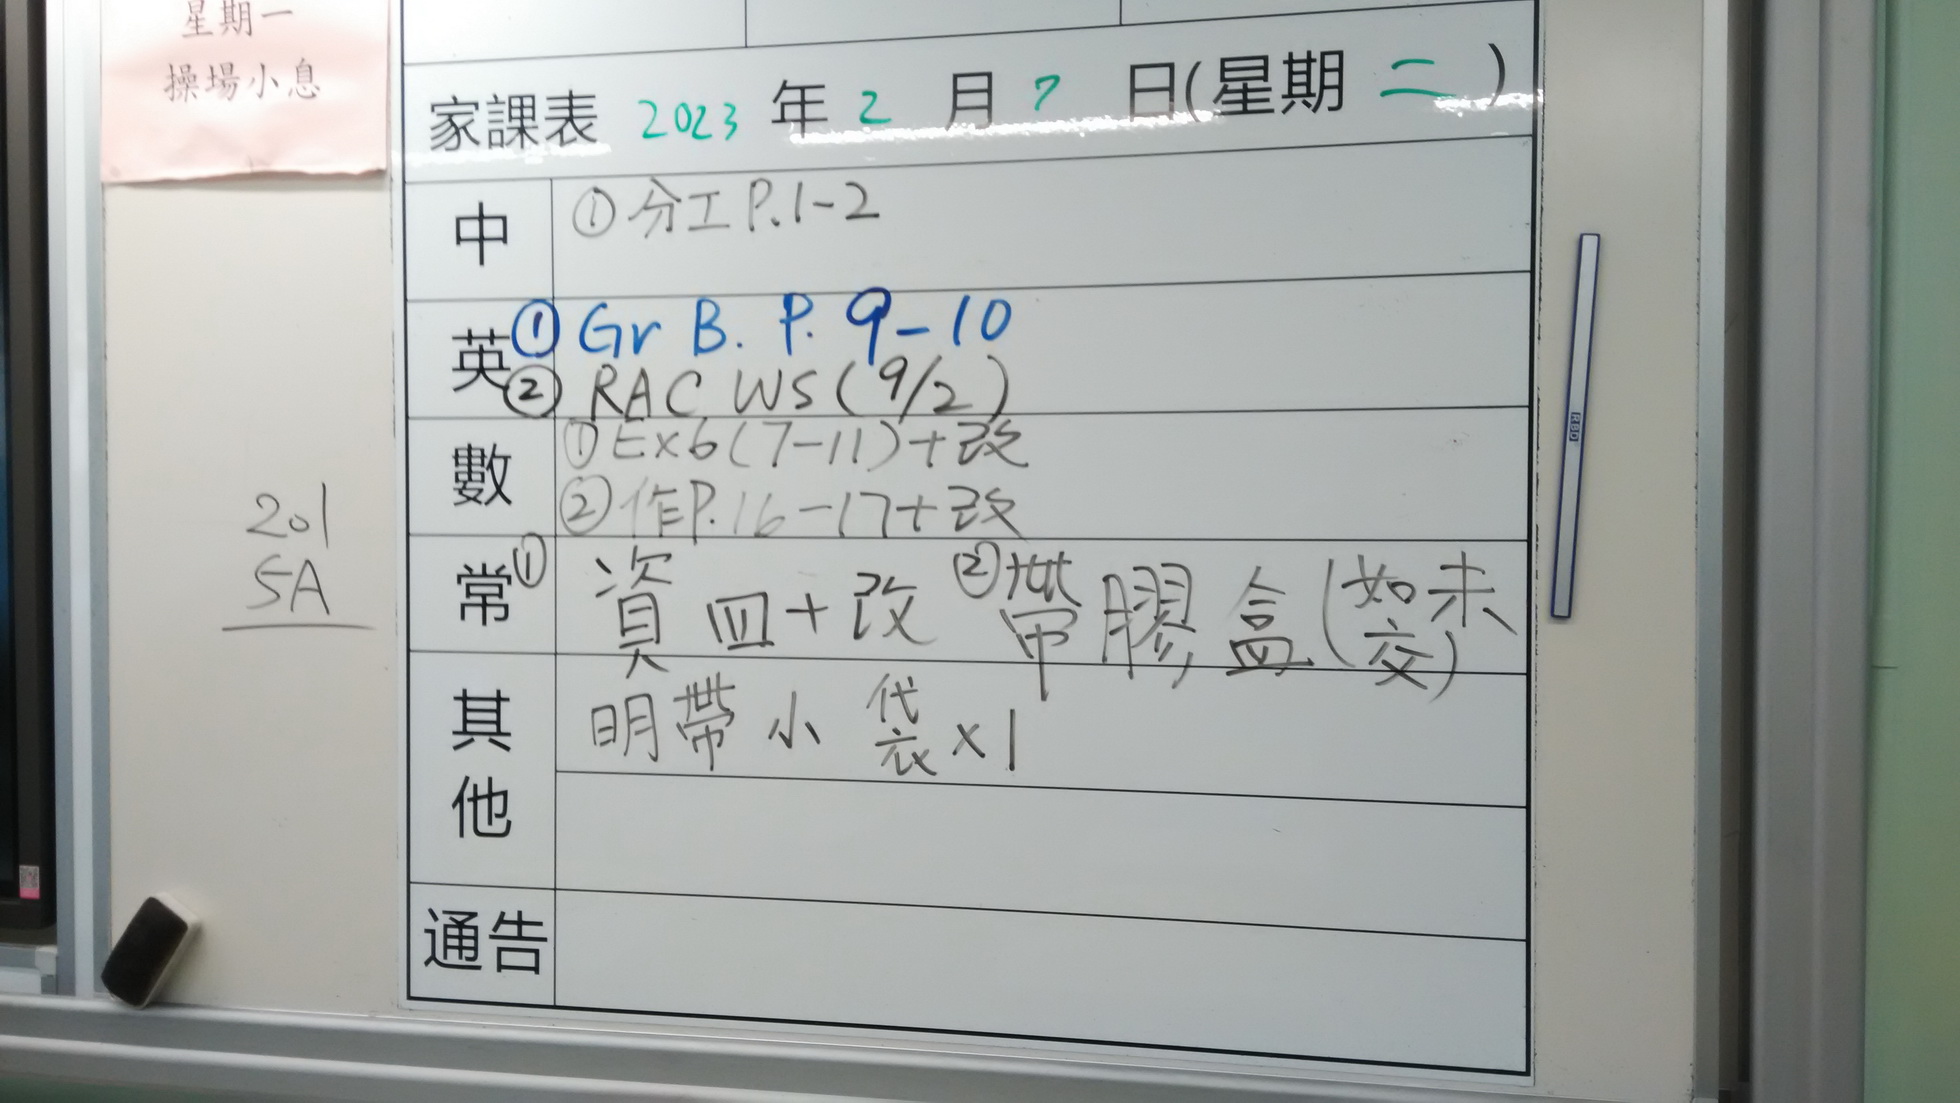 星期一
操場小息
家課表 2023 年 2 月 7 日(星期 二 )
中 ①分工P.1-2
英 ① Gr B. P. 9-10
② RAC WS (9/2)
數 ①Ex6(7-11)+改
②作P.16-17+改
常 ① 資四+改 ②帶膠盒(如未交)
其他 明帶小袋x1
通告
201
5A